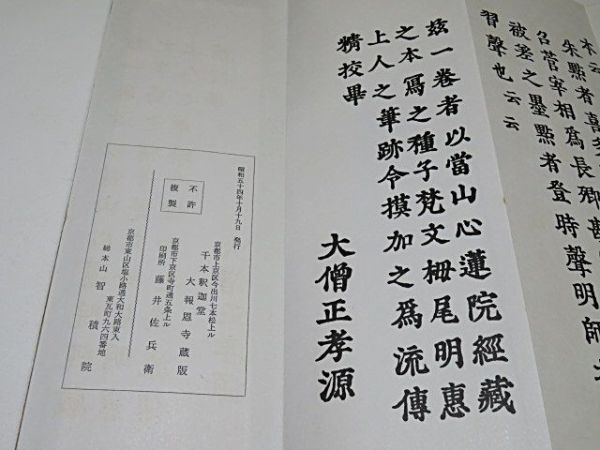 本云
朱點者喜多
召菅宰相爲長卿
被差之墨點者登時聲明師
習聲也云云
玆一卷者以當山心蓮院經藏
之本寫之種子梵文栂尾明惠
上人之筆跡今摸加之爲流傳
精挍畢
大僧正孝源
昭和五十四年十月十九日 発行
不許複製
京都市上京区今出川七本松上ル
千本釈迦堂
大報恩寺蔵版
京都市下京区寺町通五条上ル
印刷所 藤井佐兵衛
京都市東山区塩小路通大和大路東入
東瓦町九六四番地
総本山 智積院